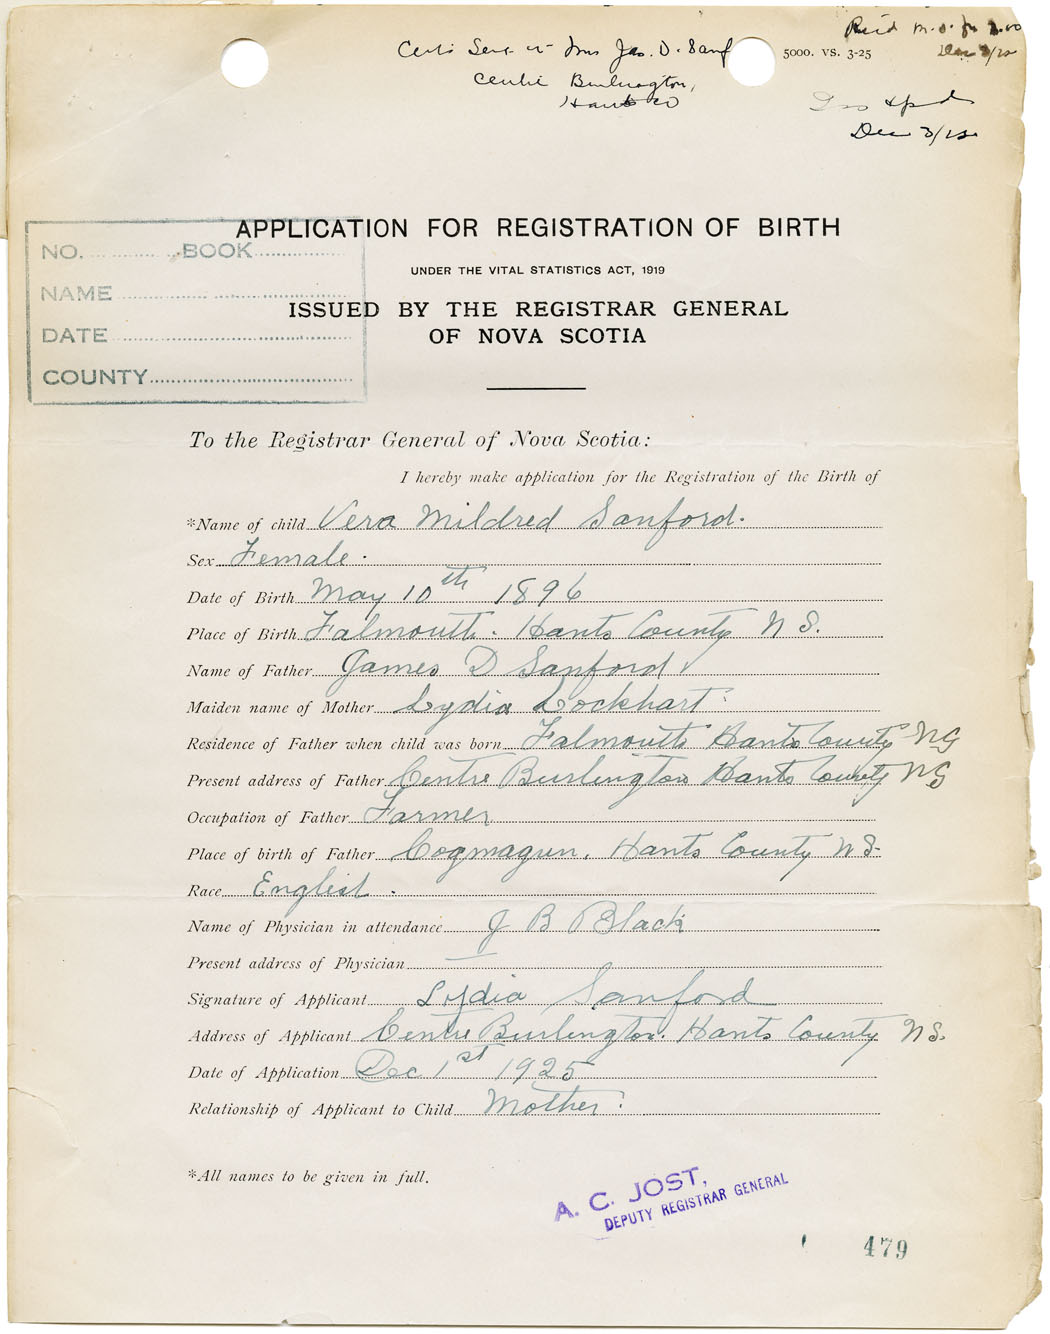 Recd M.O. for 2.00
Dec 3/25
Certi Sent to Mrs Jas. D. Sanf
5000. VS. 3-25
Centre Burlington,
Hants Co
Dec 3/25
APPLICATION FOR REGISTRATION OF BIRTH
UNDER THE VITAL STATISTICS ACT, 1919
ISSUED BY THE REGISTRAR GENERAL
OF NOVA SCOTIA
NO. BOOK
NAME
DATE
COUNTY
To the Registrar General of Nova Scotia:
I hereby make application for the Registration of the Birth of
*Name of child Vera Mildred Sanford.
Sex Female.
Date of Birth May 10th 1896
Place of Birth Falmouth. Hants County N S.
Name of Father James D Sanford
Maiden name of Mother Lydia Lockhart
Residence of Father when child was born Falmouth Hants County NS
Present address of Father Centre Burlington Hants County NS
Occupation of Father Farmer
Place of birth of Father Cogmagun, Hants County N S.
Race English.
Name of Physician in attendance J B Black
Present address of Physician
Signature of Applicant Lydia Sanford
Address of Applicant Centre Burlington. Hants County N S.
Date of Application Dec 1st 1925
Relationship of Applicant to Child Mother
*All names to be given in full.
A. C. JOST,
DEPUTY REGISTRAR GENERAL
479